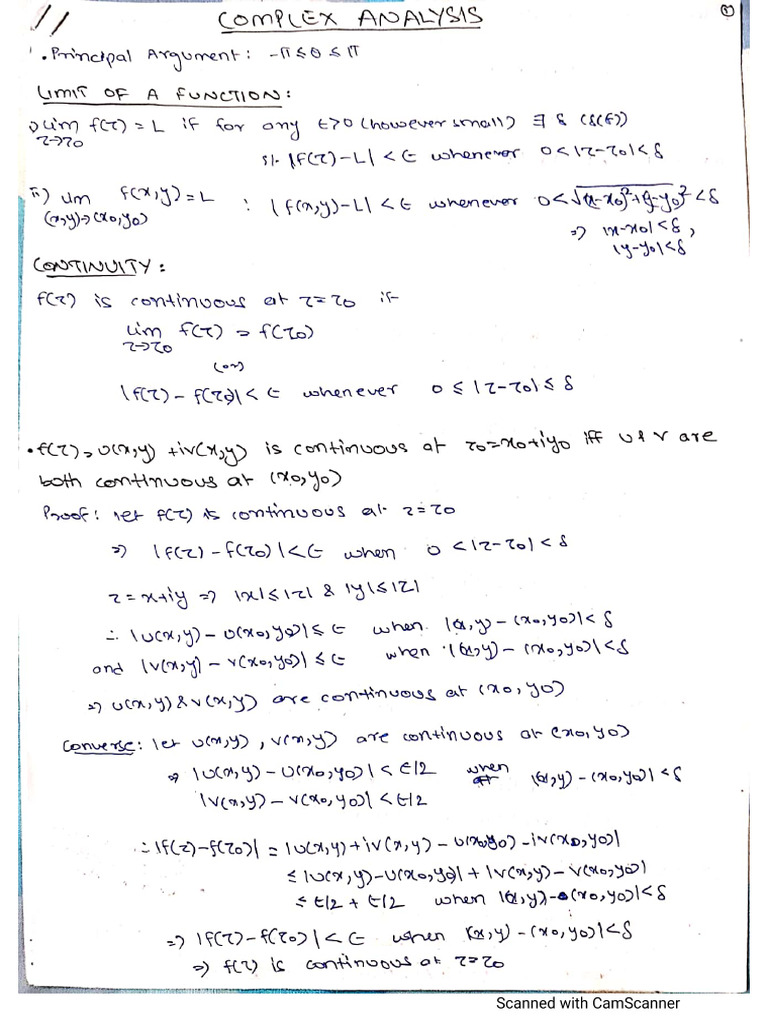 11
COMPLEX ANALYSIS
1
• Principal Argument: -π ≤ θ ≤ π
LIMIT OF A FUNCTION:
i) lim f(z) = L if for any ε>0 (however small) ∃ δ (δ(ε))
z→z0
s.t. |f(z)-L| < ε whenever 0<|z-z0|<δ
ii) lim f(x,y)=L : |f(x,y)-L| < ε whenever 0<√(x-x0)²+(y-y0)² <δ
(x,y)→(x0,y0)
⇒ |x-x0|<δ,
|y-y0|<δ
CONTINUITY:
f(z) is continuous at z=z0 if
lim f(z) = f(z0)
z→z0
(or)
|f(z)-f(z0)|<ε whenever 0 ≤ |z-z0| ≤ δ
• f(z)=u(x,y)+iv(x,y) is continuous at z0=x0+iy0 iff u & v are
both continuous at (x0,y0)
Proof: let f(z) is continuous at z=z0
⇒ |f(z)-f(z0)|<ε when 0<|z-z0|<δ
z=x+iy ⇒ |x|≤|z| & |y|≤|z|
∴ |u(x,y)-u(x0,y0)|≤ε when |(x,y)-(x0,y0)|<δ
and |v(x,y)-v(x0,y0)|≤ε when |(x,y)-(x0,y0)|<δ
⇒ u(x,y) & v(x,y) are continuous at (x0,y0)
Converse: let u(x,y), v(x,y) are continuous at (x0,y0)
⇒ |u(x,y)-u(x0,y0)|<ε/2 when |(x,y)-(x0,y0)|<δ
|v(x,y)-v(x0,y0)|<ε/2
∴ |f(z)-f(z0)| = |u(x,y)+iv(x,y)-u(x0,y0)-iv(x0,y0)|
≤ |u(x,y)-u(x0,y0)|+|v(x,y)-v(x0,y0)|
≤ ε/2+ε/2 when |(x,y)-(x0,y0)|<δ
⇒ |f(z)-f(z0)|<ε when |(x,y)-(x0,y0)|<δ
⇒ f(z) is continuous at z=z0
Scanned with CamScanner